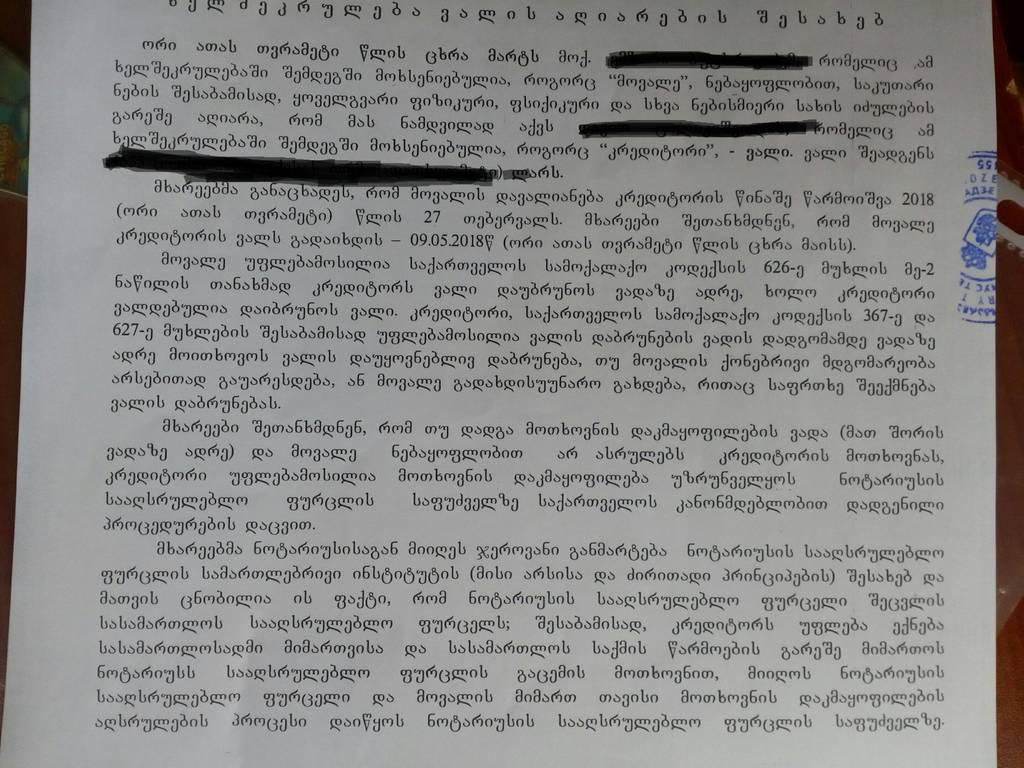 ხ ე ლ შ ე კ რ უ ლ ე ბ ა ვ ა ლ ი ს ა ღ ი ა რ ე ბ ი ს შ ე ს ა ხ ე ბ
ორი ათას თვრამეტი წლის ცხრა მარტს მოქ. რომელიც ამ
ხელშეკრულებაში შემდეგში მოხსენიებულია, როგორც “მოვალე”, ნებაყოფლობით, საკუთარი
ნების შესაბამისად, ყოველგვარი ფიზიკური, ფსიქიკური და სხვა ნებისმიერი სახის იძულების
გარეშე აღიარა, რომ მას ნამდვილად აქვს რომელიც ამ
ხელშეკრულებაში შემდეგში მოხსენიებულია, როგორც “კრედიტორი”, - ვალი. ვალი შეადგენს
) ლარს.
მხარეებმა განაცხადეს, რომ მოვალის დავალიანება კრედიტორის წინაშე წარმოიშვა 2018
(ორი ათას თვრამეტი) წლის 27 თებერვალს. მხარეები შეთანხმდნენ, რომ მოვალე
კრედიტორის ვალს გადაიხდის – 09.05.2018წ (ორი ათას თვრამეტი წლის ცხრა მაისს).
მოვალე უფლებამოსილია საქართველოს სამოქალაქო კოდექსის 626-ე მუხლის მე-2
ნაწილის თანახმად კრედიტორს ვალი დაუბრუნოს ვადაზე ადრე, ხოლო კრედიტორი
ვალდებულია დაიბრუნოს ვალი. კრედიტორი, საქართველოს სამოქალაქო კოდექსის 367-ე და
627-ე მუხლების შესაბამისად უფლებამოსილია ვალის დაბრუნების ვადის დადგომამდე ვადაზე
ადრე მოითხოვოს ვალის დაუყოვნებლივ დაბრუნება, თუ მოვალის ქონებრივი მდგომარეობა
არსებითად გაუარესდება, ან მოვალე გადახდისუუნარო გახდება, რითაც საფრთხე შეექმნება
ვალის დაბრუნებას.
მხარეები შეთანხმდნენ, რომ თუ დადგა მოთხოვნის დაკმაყოფილების ვადა (მათ შორის
ვადაზე ადრე) და მოვალე ნებაყოფლობით არ ასრულებს კრედიტორის მოთხოვნას,
კრედიტორი უფლებამოსილია მოთხოვნის დაკმაყოფილება უზრუნველყოს ნოტარიუსის
სააღსრულებლო ფურცლის საფუძველზე საქართველოს კანონმდებლობით დადგენილი
პროცედურების დაცვით.
მხარეებმა ნოტარიუსისაგან მიიღეს ჯეროვანი განმარტება ნოტარიუსის სააღსრულებლო
ფურცლის სამართლებრივი ინსტიტუტის (მისი არსისა და ძირითადი პრინციპების) შესახებ და
მათვის ცნობილია ის ფაქტი, რომ ნოტარიუსის სააღსრულებლო ფურცელი შეცვლის
სასამართლოს სააღსრულებლო ფურცელს; შესაბამისად, კრედიტორს უფლება ექნება
სასამართლოსადმი მიმართვისა და სასამართლოს საქმის წარმოების გარეშე მიმართოს
ნოტარიუსს სააღსრულებლო ფურცლის გაცემის მოთხოვნით, მიიღოს ნოტარიუსის
სააღსრულებლო ფურცელი და მოვალის მიმართ თავისი მოთხოვნის დაკმაყოფილების
აღსრულების პროცესი დაიწყოს ნოტარიუსის სააღსრულებლო ფურცლის საფუძველზე.